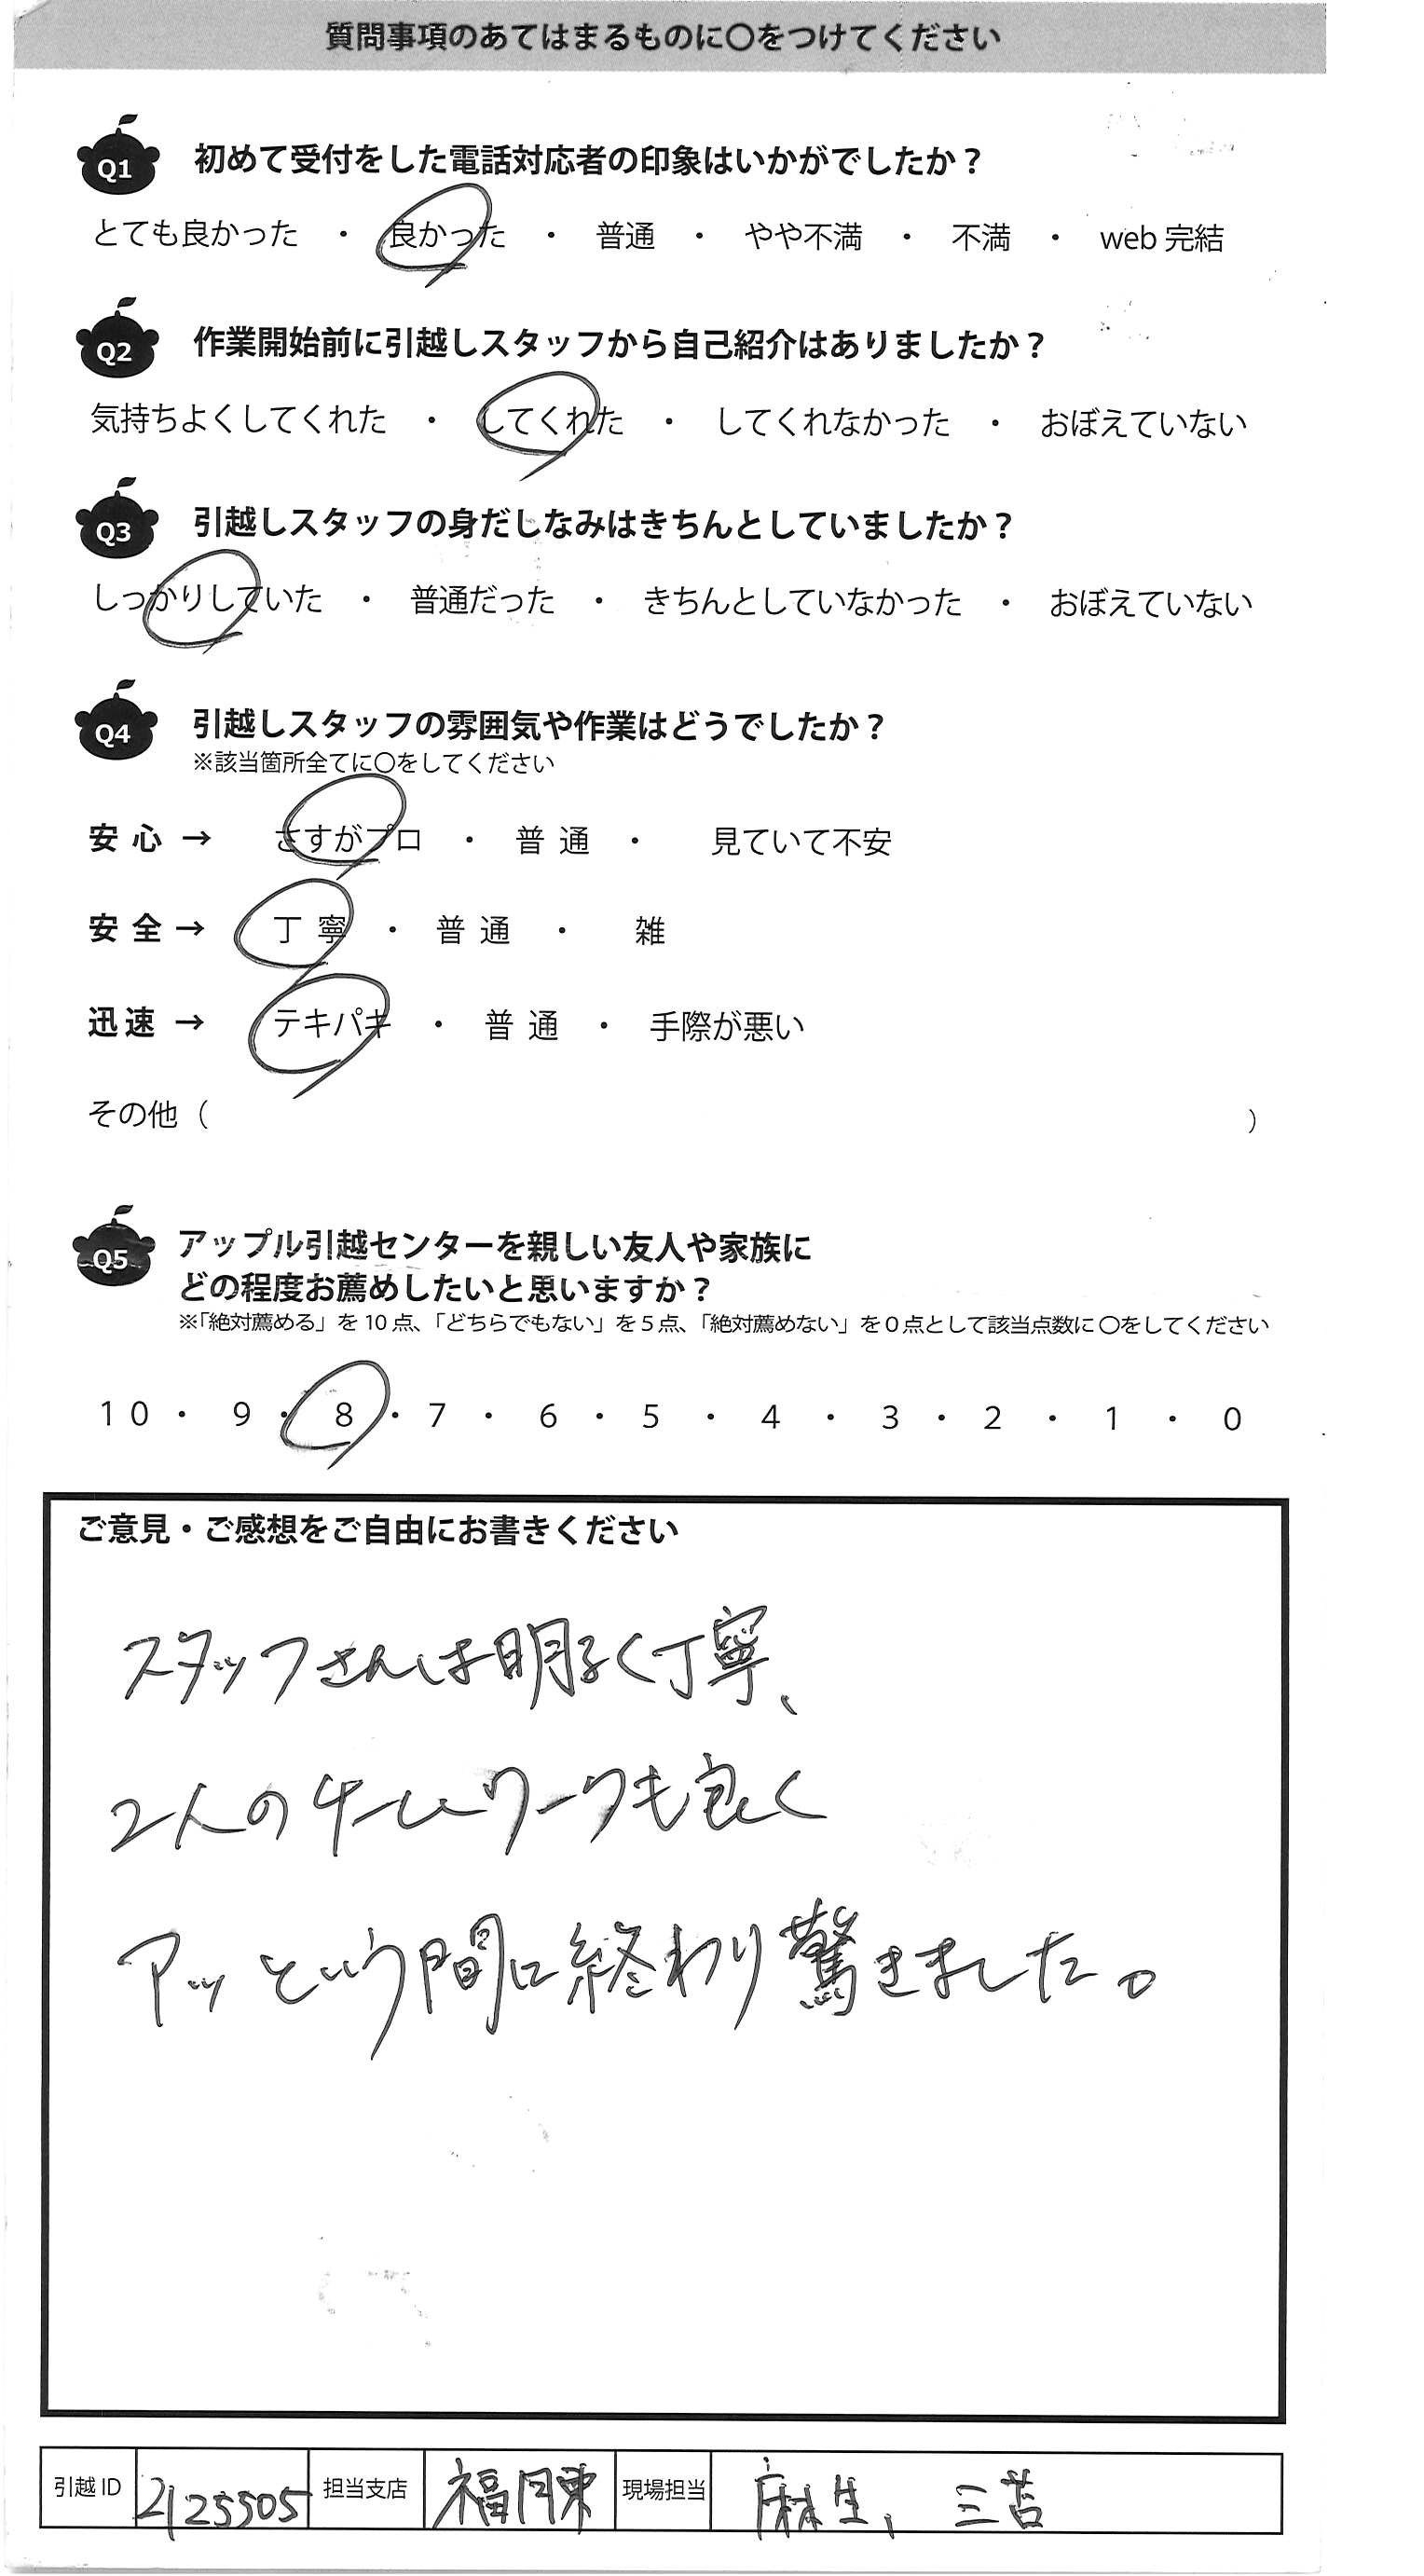 質問事項のあてはまるものに〇をつけてください
Q1 初めて受付をした電話対応者の印象はいかがでしたか？
とても良かった ・ 良かった ・ 普通 ・ やや不満 ・ 不満 ・ web 完結
Q2 作業開始前に引越しスタッフから自己紹介はありましたか？
気持ちよくしてくれた ・ してくれた ・ してくれなかった ・ おぼえていない
Q3 引越しスタッフの身だしなみはきちんとしていましたか？
しっかりしていた ・ 普通だった ・ きちんとしていなかった ・ おぼえていない
Q4 引越しスタッフの雰囲気や作業はどうでしたか？
※該当箇所全てに〇をしてください
安心 → さすがプロ ・ 普通 ・ 見ていて不安
安全 → 丁寧 ・ 普通 ・ 雑
迅速 → テキパキ ・ 普通 ・ 手際が悪い
その他（ ）
Q5 アップル引越センターを親しい友人や家族に
どの程度お薦めしたいと思いますか？
※「絶対薦める」を 10 点、「どちらでもない」を 5 点、「絶対薦めない」を 0 点として該当点数に 〇をしてください
10 ・ 9 ・ 8 ・ 7 ・ 6 ・ 5 ・ 4 ・ 3 ・ 2 ・ 1 ・ 0
ご意見・ご感想をご自由にお書きください
スタッフさんは明るく丁寧、
2人のチームワークも良く
アッという間に終わり驚きました。
引越 ID 2125505 担当支店 福岡東 現場担当 麻生、三苫